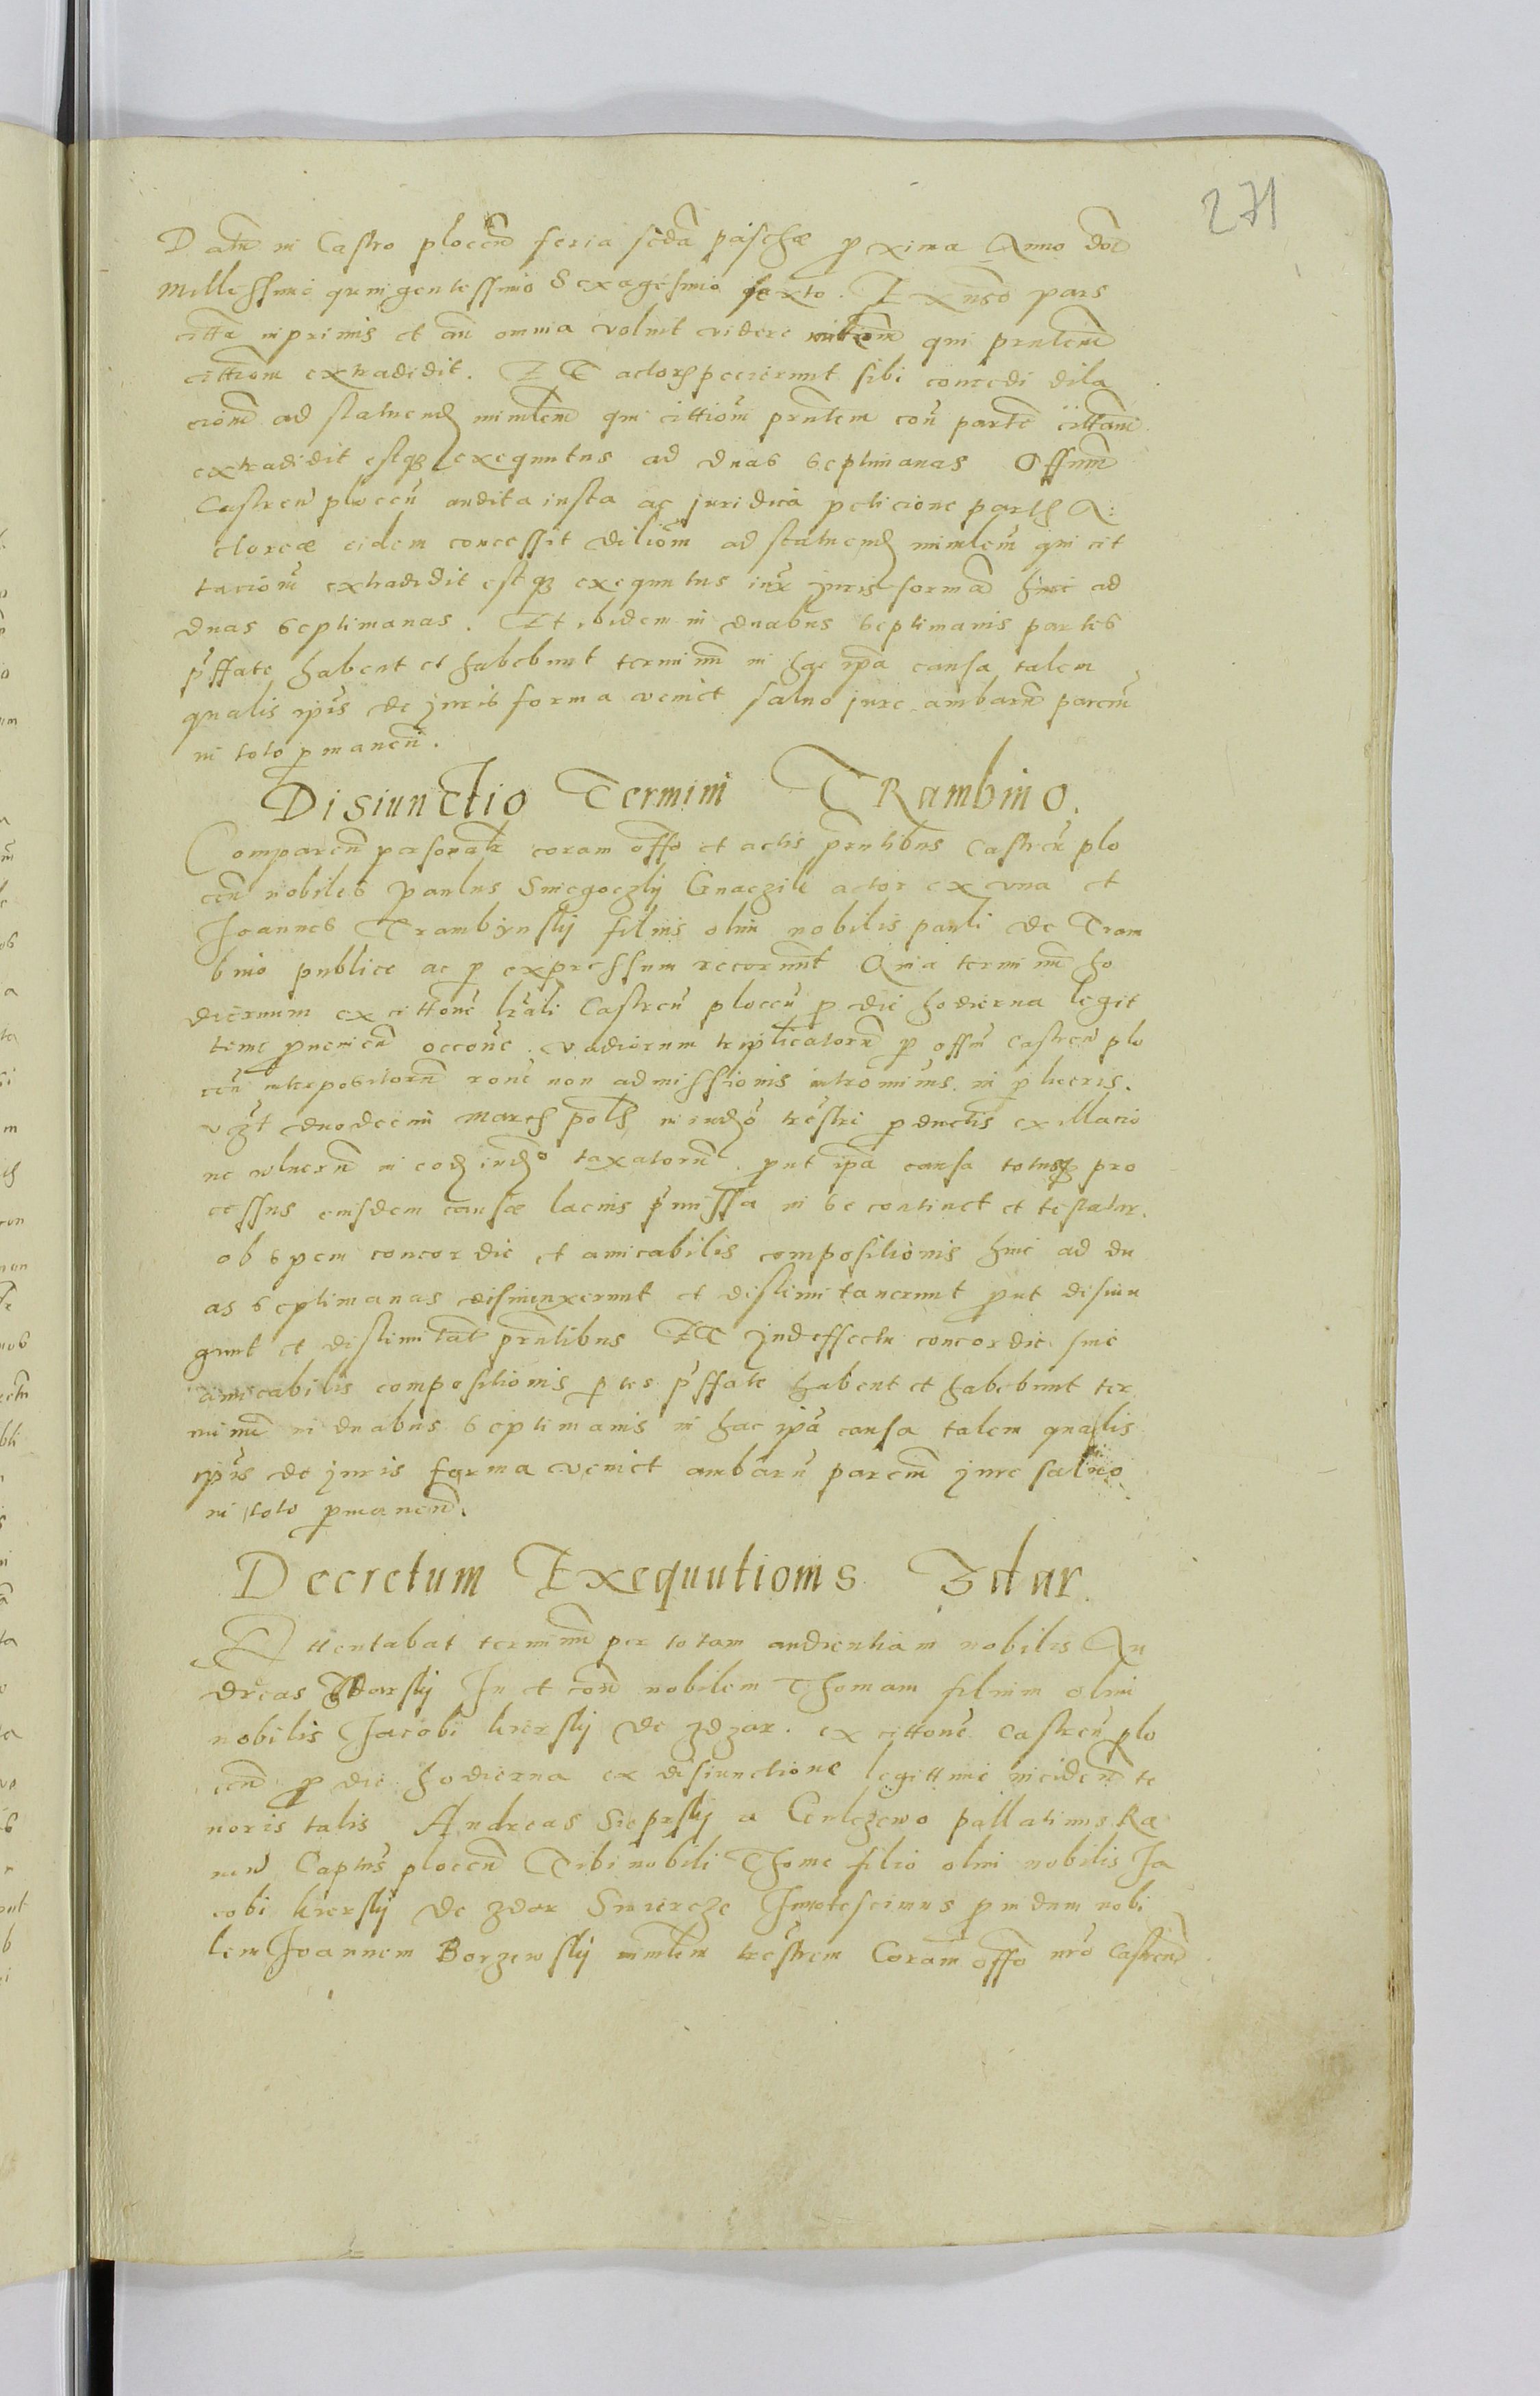 271
Datū in Castro plocēn feria scda paschæ proxima Anno dni
Millessimo quingentessimo Sexagesimo sexto. Ex adūso pars
citta inprimis et an omnia voluit videre mitem qui prntem
cittiom extradidit. Et actorς pecierunt sibi concedi dila
ciom ad statuendς mimlem qui cittiom prntem con partē cittam
extradidit estqς exequutus ad duas septimanas Offium
Castren plocen audita iusta ac juridica peticione partς A:
ctoreæ eidem concessit diliom ad statuendς mimlem qui cit
tationem extradidit estqς exequutus iux juris formā hinc ad
duas septimanas. Et ibidem in duabus septimanis partes
pffate habent et habebunt terminū in hac ipa causa talem
qualis ipis de juris forma veniet saluo jure ambarū parcium
in toto pmanen.
Disiunctio Termini TRambino.
Comparen personalr coram offo et actis prntibus Castren plo
cen nobiles Paulus Sniegoczky Gnaczik actor ex vna et
Joannes Trambynsky filius olim nobilis pauli de Tram
bino publice ac p expressum recorunt Quia terminū ho
diernum ex cittone lrali Castren plocen p die hodierna legit
time pueniem occone vadiorum triplicatorū p offm Castren plo
cen interpositorū rone non admissionis intromims in plucris.
vzt duodecim marcς polς in iudo trestri pductis ex illatio
ne vlnerū in eodς iudo taxatorū. put ipa causa totusqς pro
cessus eiusdem causæ lacius pmissa in se continet et testatur.
ob spem concordie et amicabilis compositionis hinc ad du
as septimanas disiunxerunt et dislimitauerunt put disiun
gunt et dislimitat prntibus Et Jndeffectu concordie siue
amicabilis compositionis ptes pffate habent et habebunt ter
minū in duabus septimanis in hac ipa causa talem qualis
ipis de juris forma veniet ambarū parcm jure saluo
in toto pmanen.
Decretum Exequutionis Zdar.
Attentabat terminū per totam audientiam nobilis An
dreas Zdarsky In et con nobilem Thomam filium olim
nobilis Jacobi kiersky de Zdzar. ex cittone Castren plo
cen p die hodierna ex disiunctione legittime inciden te
noris talis Andreas Sieprsky a Gulczewo pallatinus Ra
uen Captus plocen Tibi nobili Thome filio olim nobilis Ja
cobi kiersky de zdar Swiercze Innotescimus pindum nobi
lem Joannem Borzewsky mimlem trestrem Coram offo nro Castren